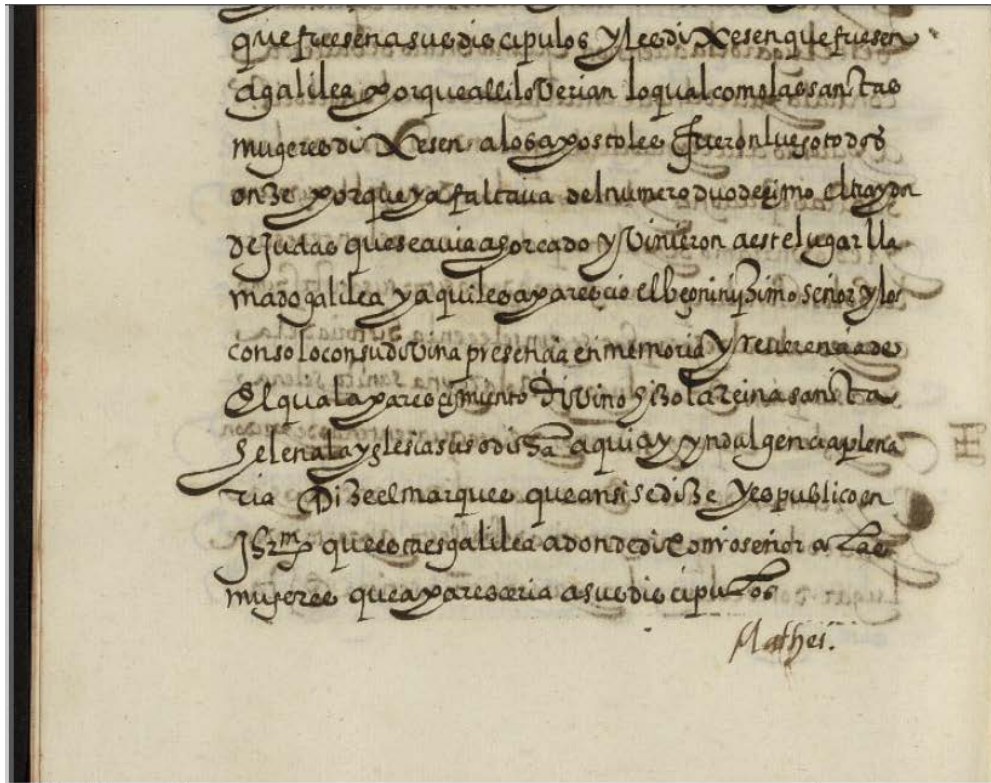 que fuesen a sus discipulos y les dixesen que fuesen
a galilea porque alli lo verian lo qual como las sanctas
mugeres dixesen a los apostoles fueron luego todos
onze porque ya faltava del numero duodeçimo el traydor
de Judas que se avia ahorcado y vinieron a este lugar lla
mado galilea y aqui les aparescio el beninissimo señor y los
consolo con su divina presençia en memoria y reverençia de
El qual aparesçimiento divino hizo la reina sancta
helena la yglesia susodicha aqui ay yndulgençia plena
ria Dize el marques que ansi se dize y es publico en
Jhrlm que esta es galilea adonde dixo nro señor a las
mugeres que aparesceria a sus discipulos
Mathei.